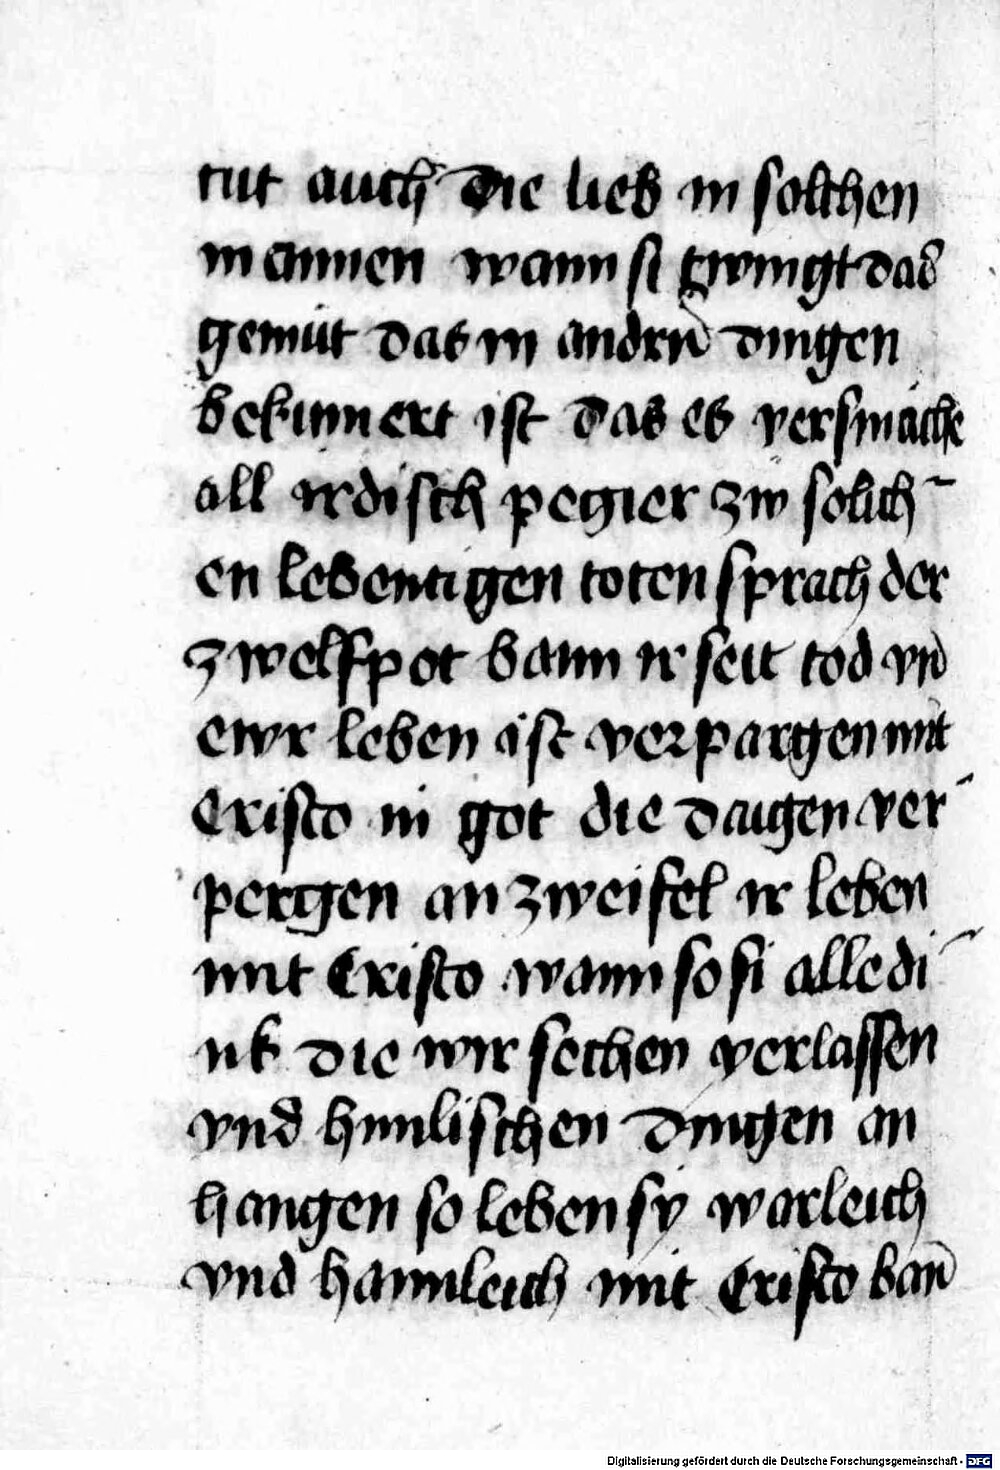 tut auch die lieb in solchen
mannen wann si twingt das
gemüt das in andrn̄ dingen
bekumert ist das es versmäche
all irdisch pegier zw solich-
en lebentigen toten sprach der
zwelfpot bann ir seit tod vn̄
ewr leben ist verpargen mit
Cristo in got die daugen ver-
pergen an zweifel ir leben
mit Cristo wann so si alle di-
nk die wir sechen verlassen
vnd himlischen dingen an
hangen so leben sy warleich
vnd hannleich mit Cristo ban̄
Digitalisierung gefördert durch die Deutsche Forschungsgemeinschaft - DFG